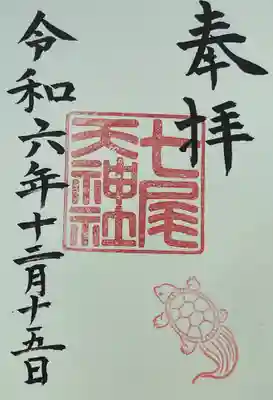 奉拝
七尾
天神社
令和六年十二月十五日